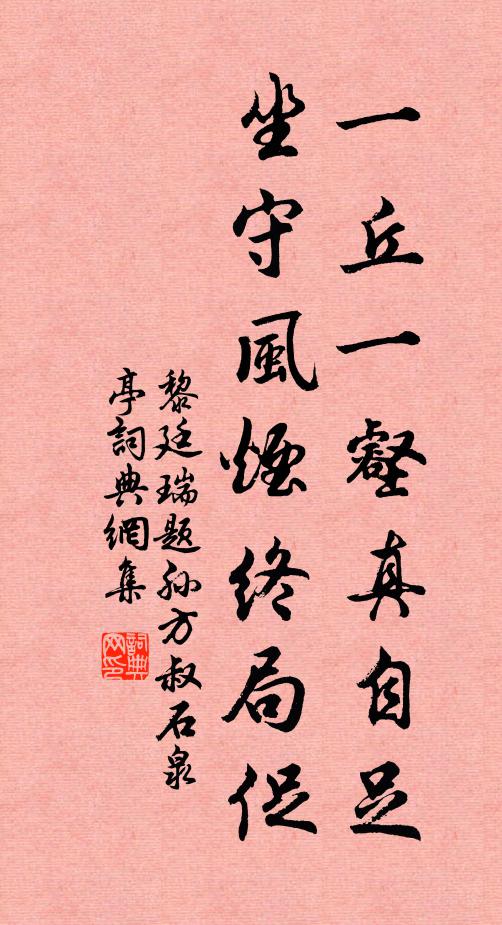 一丘一壑真自足
坐守風煙終局促
黎廷瑞題孫方叔石泉
亭詞典網集
詞典
网印